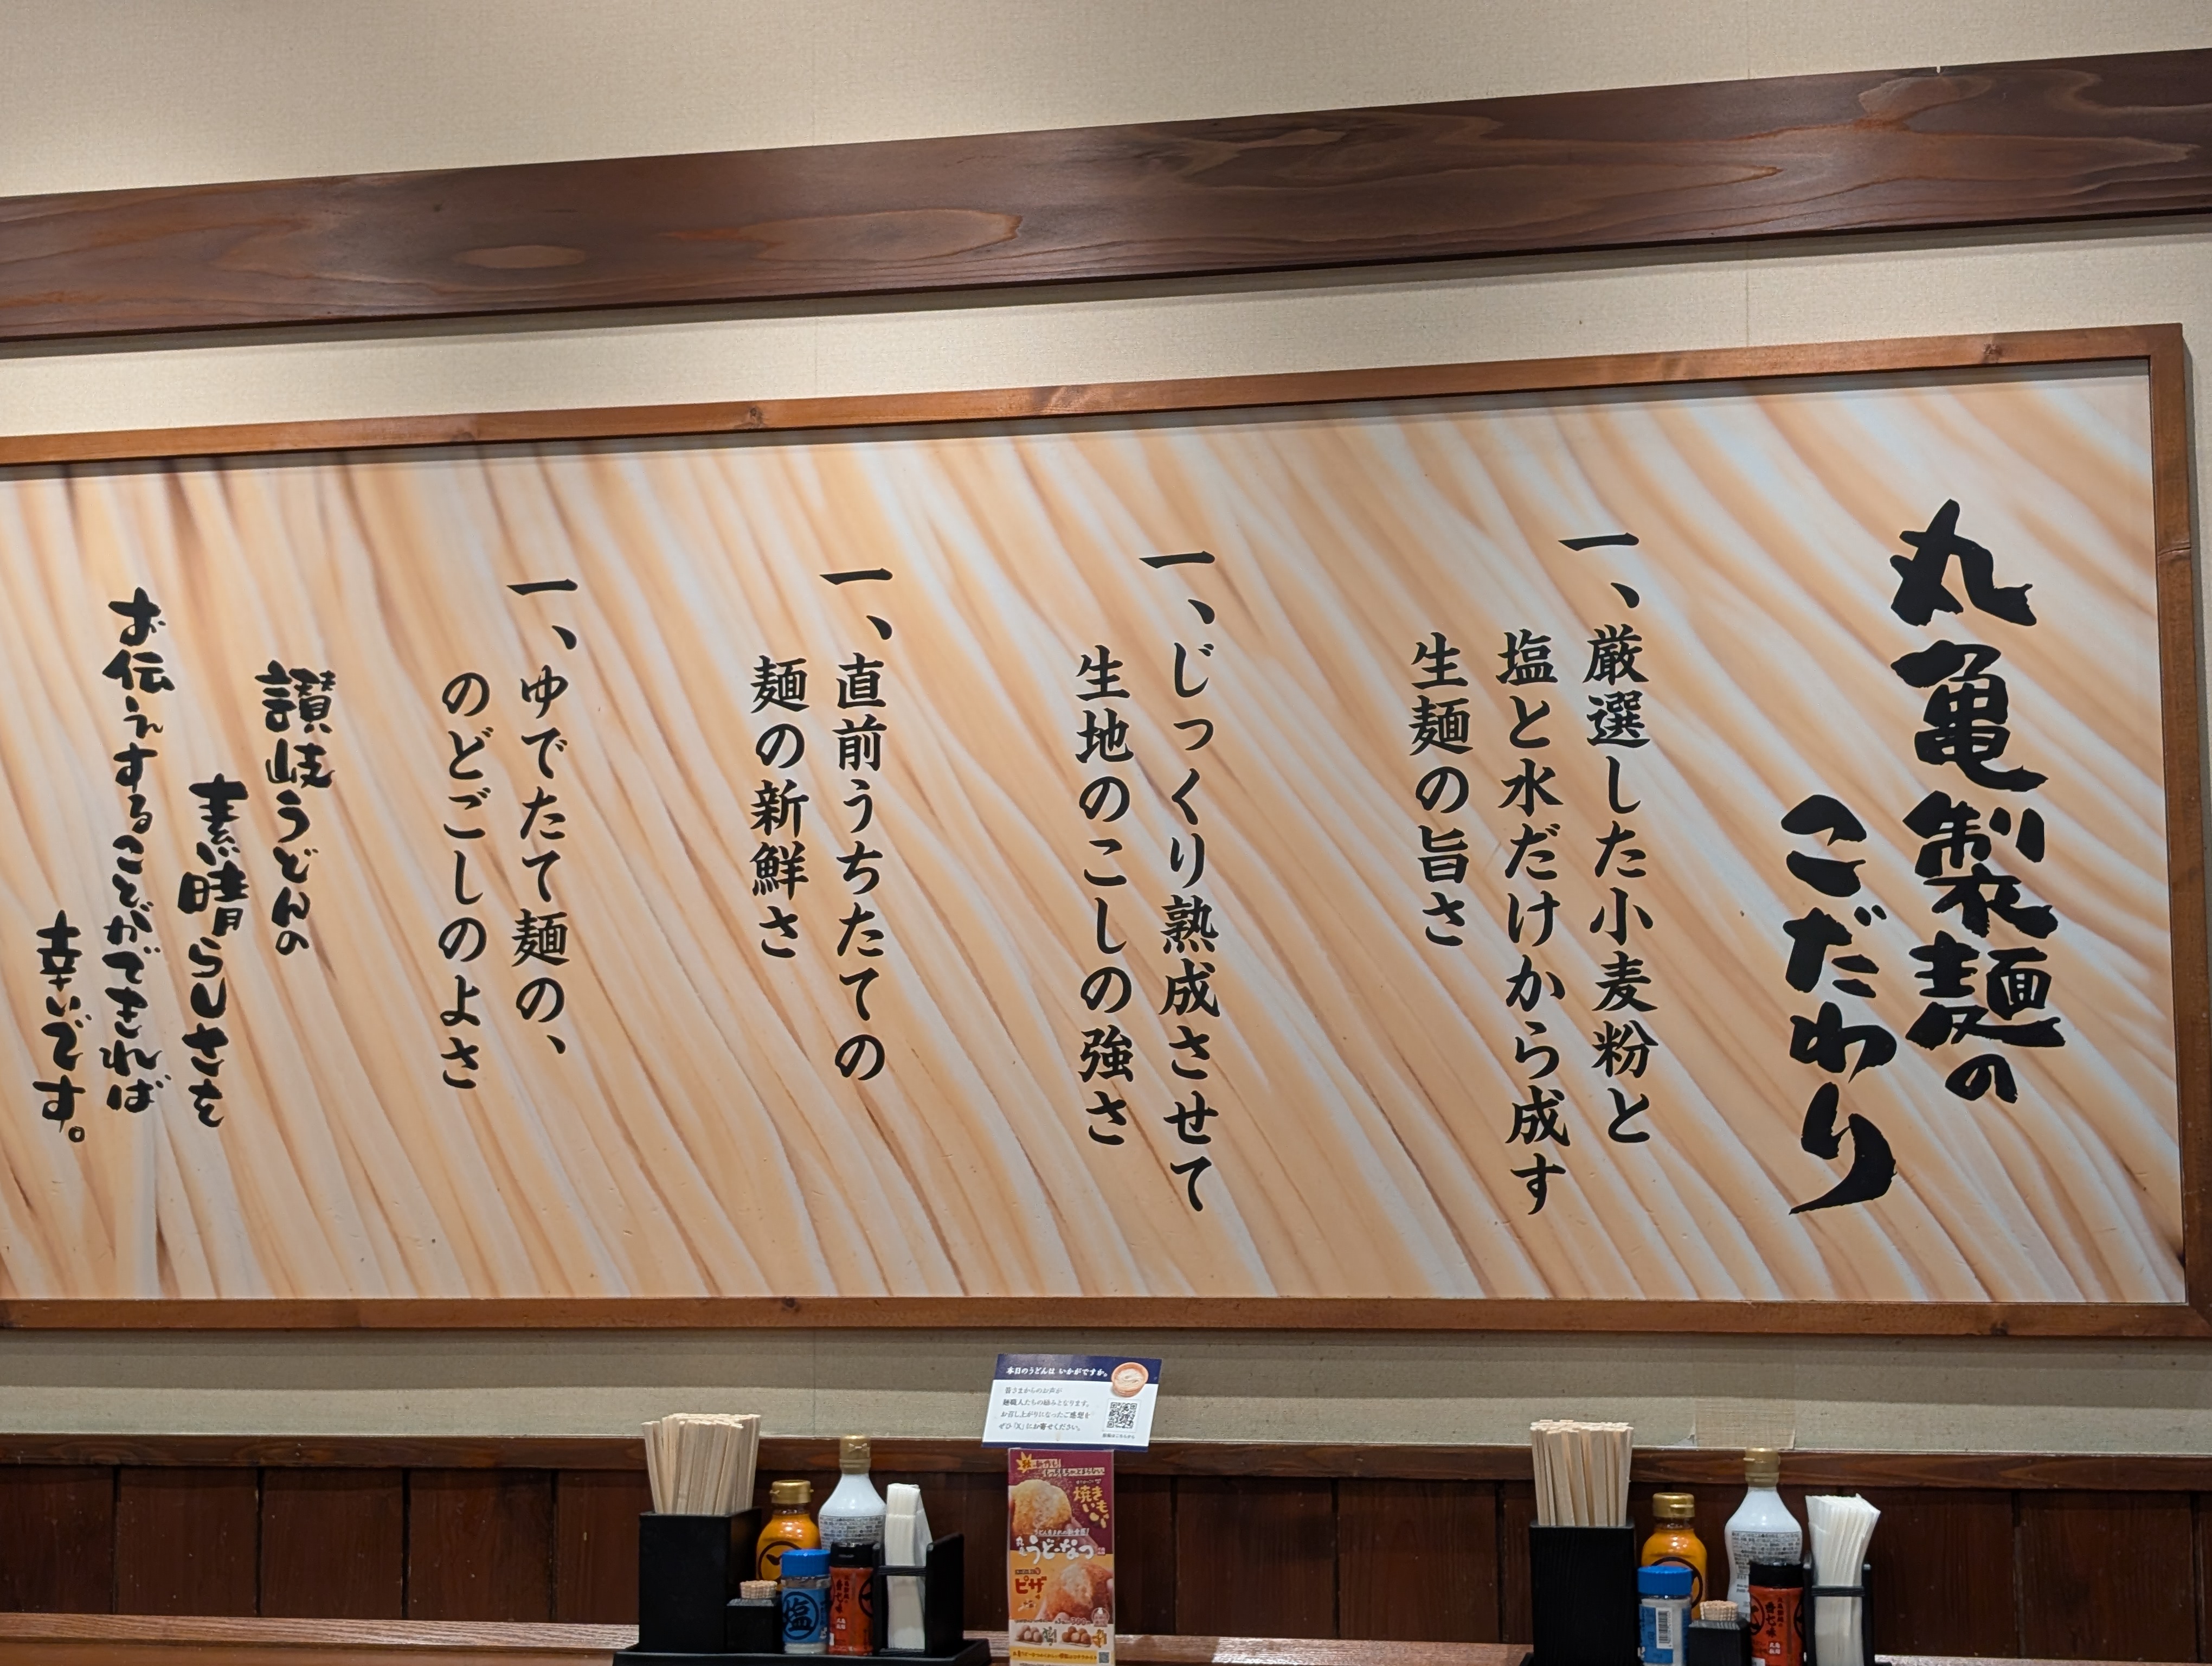 丸亀製麺の
こだわり
一、厳選した小麦粉と
塩と水だけから成す
生麺の旨さ
一、じっくり熟成させて
生地のこしの強さ
一、直前うちたての
麺の新鮮さ
一、ゆでたて麺の、
のどごしのよさ
讃岐うどんの
素晴らしさを
お伝えすることができれば
幸いです。
本日のうどんは いかがですか。
皆さまからのお声が
麺職人たちの励みとなります。
お召し上がりになったご感想を
ぜひ「X」にお寄せください。
焼きいも
うどーなつ
ピザ
塩